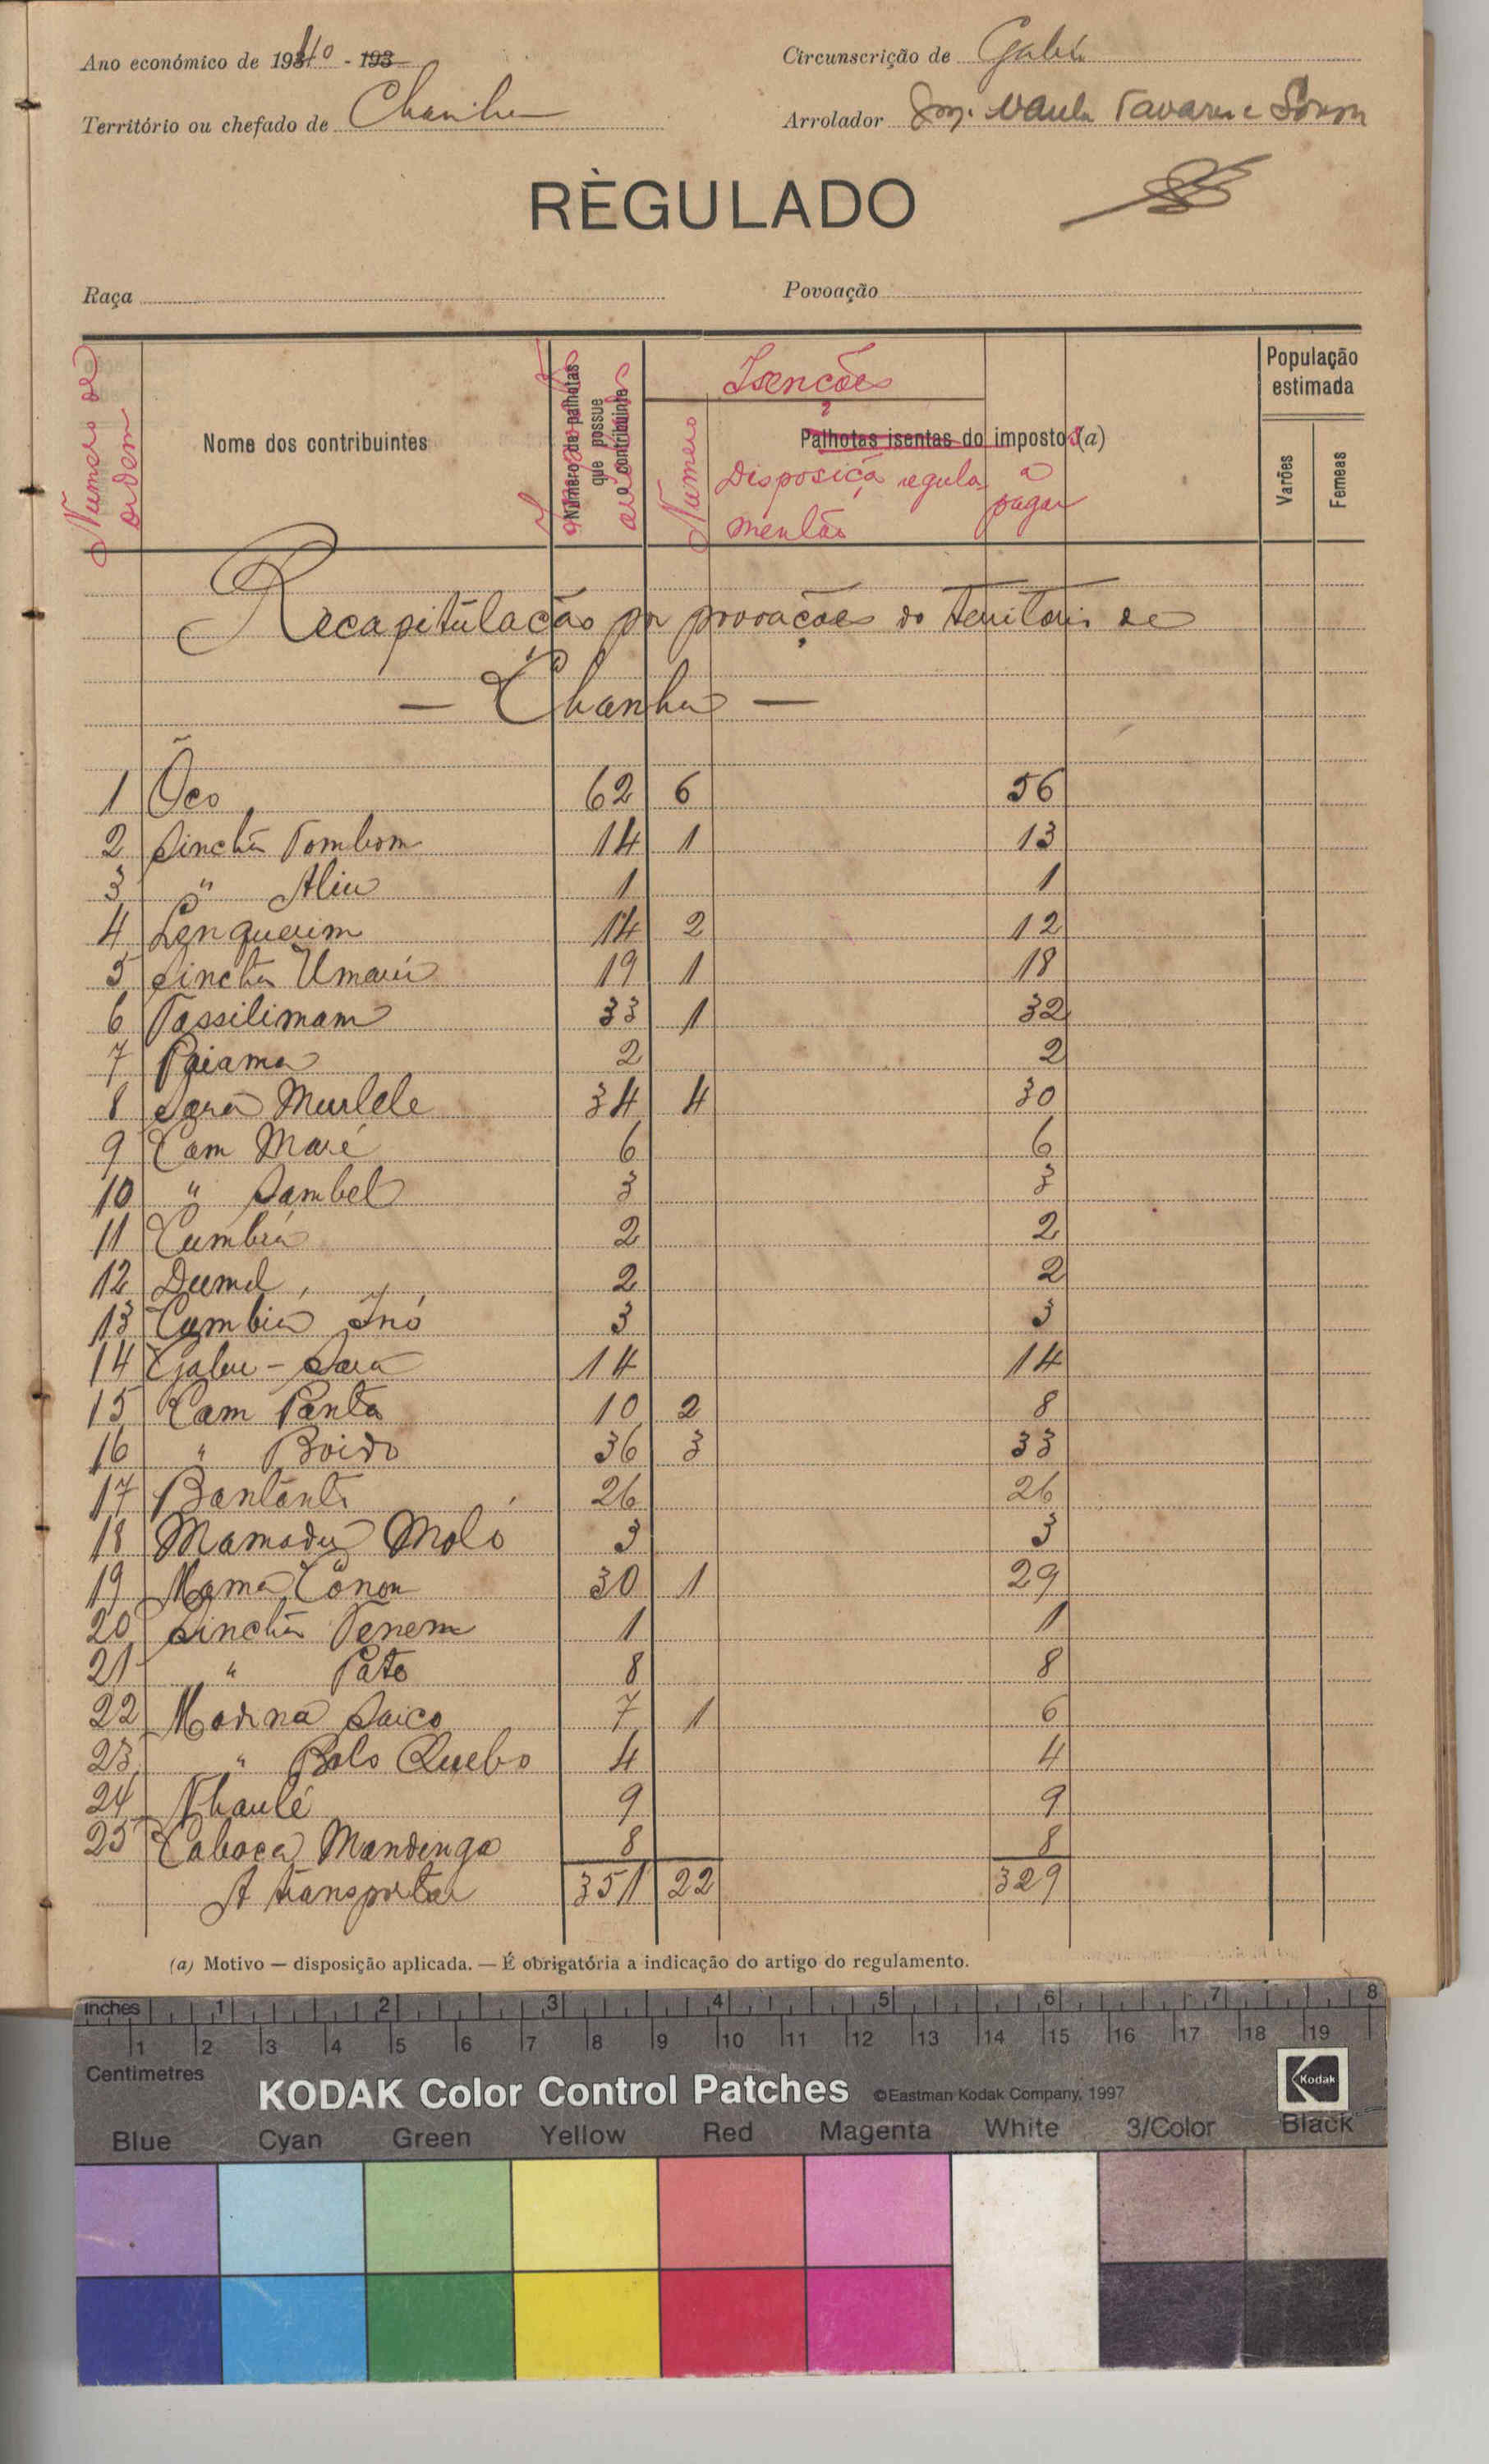 Ano económico de 1940 - 193
Circunscrição de Gabú
Território ou chefado de Chanha
Arrolador Tavares e Sousa
RÈGULADO
Raça
Povoação
Numero de ordem
Nome dos contribuintes
Número de palhotas que possue o contribuinte
arrolados
Isenções
Numero
Palhotas isentas do impostos (a)
Disposiçã regula
mentão
a pagar
População estimada
Varões
Femeas
Recapitulação por povoações do território de
— Chanha —
1 Öco 62 6 56
2 Sinchã Tombom 14 1 13
3 " Aliu 1 1
4 Lenquerim 14 2 12
5 Sinchã Umarú 19 1 18
6 Tassilimam 33 1 32
7 Paiama 2 2
8 Sará Murlele 34 4 30
9 Cam Maré 6 6
10 " Sambel 3 3
11 Cumbiá 2 2
12 Dumel 2 2
13 Cumbiá Inó 3 3
14 Gabu - Sara 14 14
15 Cam Panta 10 2 8
16 " Boido 36 3 33
17 Bantanti 26 26
18 Mamadu Moló 3 3
19 Mama Conou 30 1 29
20 Sinchã Tenem 1 1
21 " Pate 8 8
22 Madina Saico 7 1 6
23 " Bolo Quebo 4 4
24 Nhaulé 9 9
25 Caboca Mandinga 8 8
A transportar 351 22 329
(a) Motivo — disposição aplicada. — É obrigatória a indicação do artigo do regulamento.
inches 1 2 3 4 5 6 7 8
1 2 3 4 5 6 7 8 9 10 11 12 13 14 15 16 17 18 19
Centimetres
KODAK Color Control Patches ©Eastman Kodak Company, 1997 Kodak
Blue Cyan Green Yellow Red Magenta White 3/Color Black